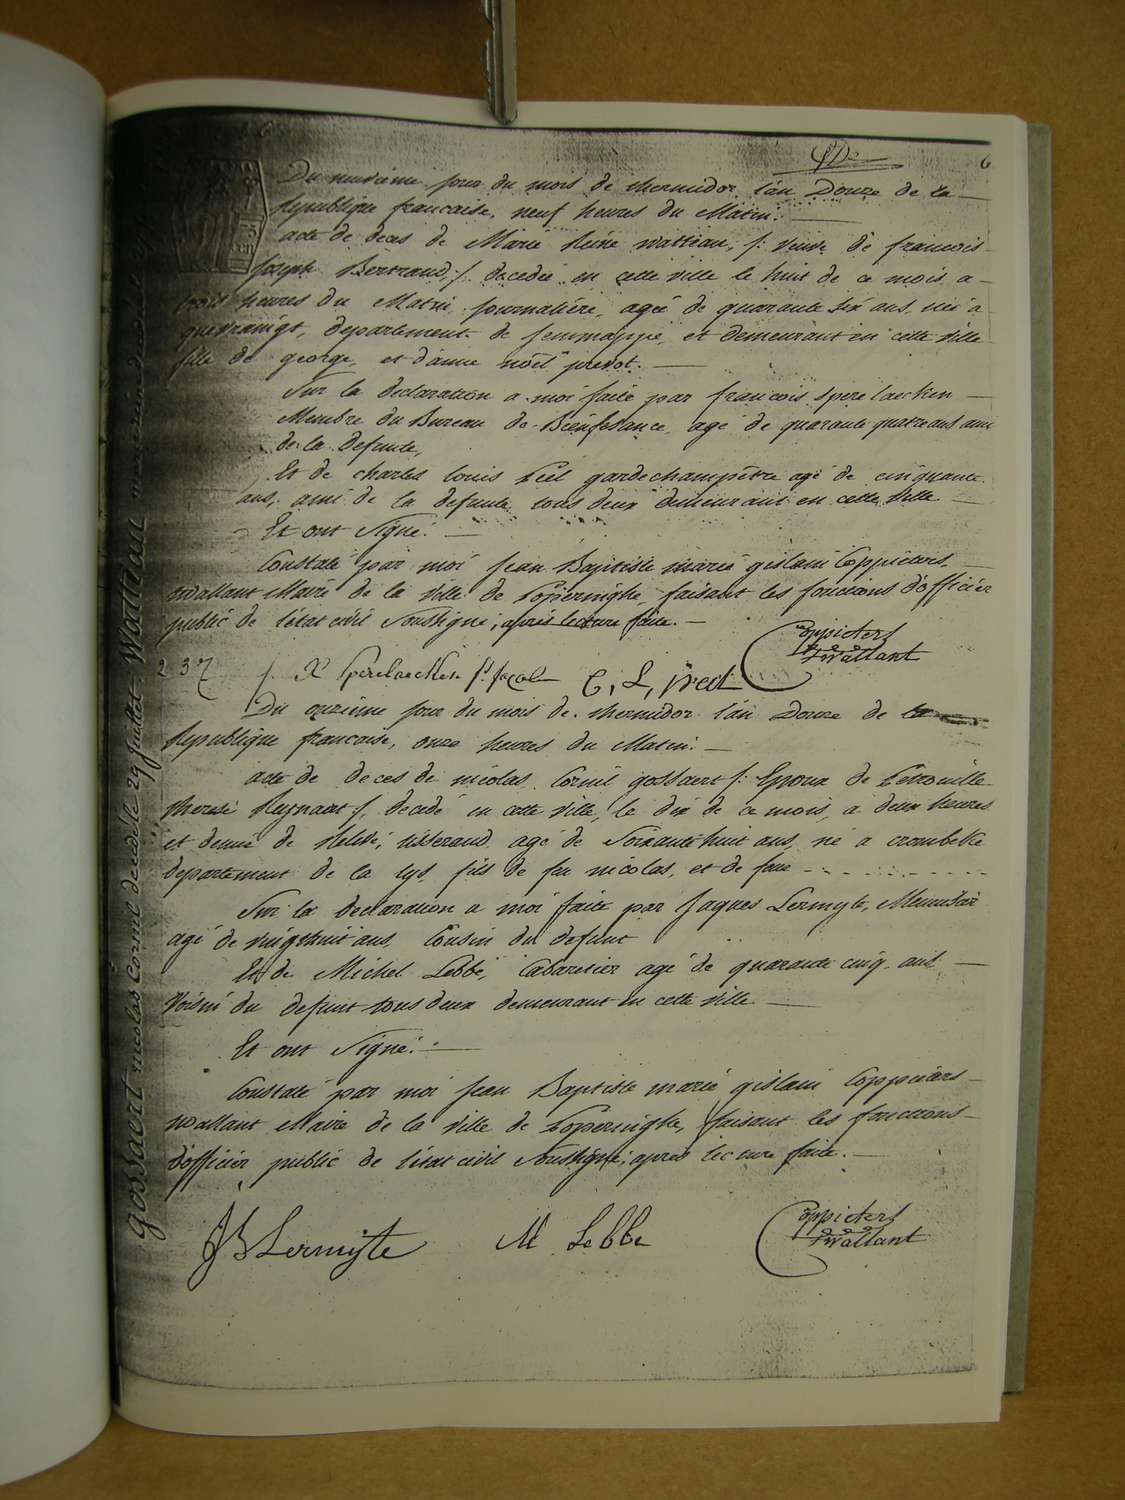 6
Du neuvieme jour du mois de thermidor l'an Douze de la
Republique francaise, neuf heures du Matin.
acte de deces de Marie Reine Wattiau, /: Veuve de francois
Joseph Bertrand :/ decedée en cette ville le huit de ce mois a
trois heures du Matin, journalière, agée de quarante six ans, née a
departement de jemmappe, et demeurant en cette ville
fille de george, et d'anne noël prevot.
Sur la declaration a moi faite par francois Sperelaecken
Membre du Bureau de Bienfesance, agé de quarante quatre ans ami
de la Defunte,
Et de charles louis garde champètre agé de cinquante
ans, ami de la defunte tous deux demeurant en cette Ville
Et ont Signé.
Constaté par moi Jean Baptiste marie gislain Coppieters
Wallant Maire de la Ville de Poperinghe, faisant les fonctions d'officier
public de l'état civil Soussigné, après lecture faite.
Coppieters
Wallant
237
Du onzieme jour du mois de thermidor l'an Douze de la
Republique francaise, onze heures du Matin.
acte de deces de nicolas Cornil gossaert /: Epoux de Petronille
Therese Reynaert :/, decedé en cette ville, le dix de ce mois, a deux heures
et demie de Relevé, tisserand agé de Soixante huit ans, né a crombeke
departement de la lys, fils de feu nicolas, et de feue
Sur la declaration a moi faite par Jaques Lermyte, Menuisier
agé de vingt huit ans, Cousin du defunt
Et de Michel Lebbe, Cabaretier agé de quarante cinq ans
Voisin du defunt tous deux demeurant en cette ville
Et ont Signé.
Constaté par moi Jean Baptiste marie gislain Coppieters
Wallant Maire de la Ville de Poperinghe, faisant les fonctions
d'officier public de l'état civil Soussigné, après lecture faite.
JB Lermyte M Lebbe
Coppieters
Wallant
gossaert nicolas Cornil decedé le 29 juillet
Wattiau